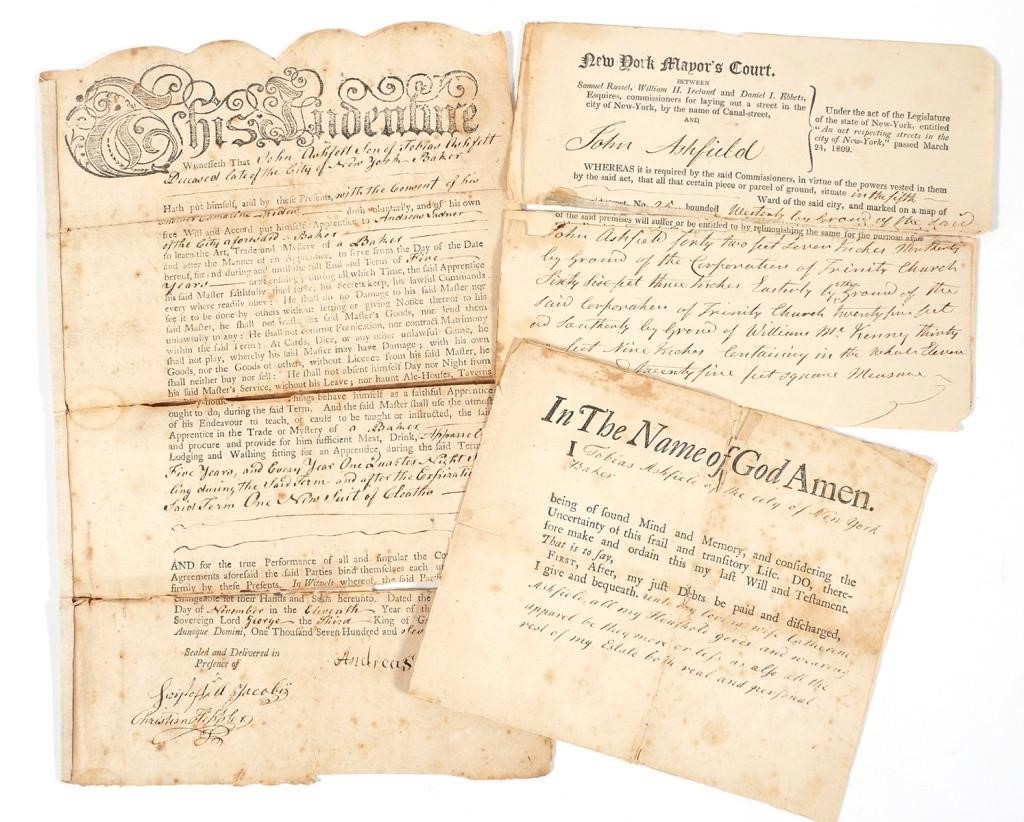 This Indenture
Witnesseth That John Ashfielt Son of Tobias Ashfilt
Deceased late of the City of New York Baker
Hath put himself, and by these Presents, with the Consent of his
doth voluntarily, and of his own
free Will and Accord put himself Apprentice to Andreas
of the City aforesaid Baker
to learn the Art, Trade and Mystery of a Baker
and after the Manner of an Apprentice, to serve from the Day of the Date
hereof, for and during and until the full End and Term of Five
Years next ensuing; during all which Time, the said Apprentice
his said Master faithfully shall serve, his Secrets keep, his lawful Commands
every where readily obey: He shall do no Damage to his said Master nor
see it to be done by others without letting or giving Notice thereof to his
said Master, he shall not waste his said Master's Goods, nor lend them
unlawfully to any: He shall not commit Fornication, nor contract Matrimony
within the said Term: At Cards, Dice, or any other unlawful Game, he
shall not play, whereby his said Master may have Damage; with his own
Goods, nor the Goods of others, without Licence from his said Master, he
shall neither buy nor sell: He shall not absent himself Day nor Night from
his said Master's Service, without his Leave; nor haunt Ale-Houses, Taverns
behave himself as a faithful Apprentice
ought to do, during the said Term. And the said Master shall use the utmost
of his Endeavour to teach, or cause to be taught or instructed, the said
Apprentice in the Trade or Mystery of a Baker
and procure and provide for him sufficient Meat, Drink, Apparrel
Lodging and Washing fitting for an Apprentice, during the said Term
Five Years, and Every Year One Quarter Night
ling during the Said Term and after the Expiratio
Said Term One New Suit of Cloaths
AND for the true Performance of all and singular the Co
Agreements aforesaid the said Parties bind themselves each u
firmly by these Presents. In Witness whereof, the said Part
changeable set their Hands and Seals hereunto. Dated the
Day of November in the Eleventh Year of th
Sovereign Lord George the Third King of G
Annoque Domini, One Thousand Seven Hundred and
Sealed and Delivered in
Presence of
Andreas
Jacoby
Christian
New York Mayor's Court.
BETWEEN
Samuel Russel, William H. Ireland and Daniel I. Ebbets,
Esquires, commissioners for laying out a street in the
city of New-York, by the name of Canal-street,
AND
John Ashfield
Under the act of the Legislature
of the state of New-York, entitled
"An act respecting streets in the
city of New-York," passed March
24, 1809.
WHEREAS it is required by the said Commissioners, in virtue of the powers vested in them
by the said act, that all that certain piece or parcel of ground, situate in the fifth
Ward of the said city, and marked on a map of
No. 25 bounded Westerly by Ground of the said
of the said premises will suffer or be entitled to by relinquishing the same for the purpose
John Ashfield forty two feet Seven Inches Northerly
by Ground of the Corporation of Trinity Church
Sixty Six feet three Inches Easterly by other Ground of the
Said Corporation of Trinity Church twenty five feet
and Southerly by Ground of William Mc Kenney thirty
feet Nine Inches Containing in the whole Eleven
twenty five feet square Measure
In The Name of God Amen.
I Tobias Ashfield of the City of New York
Baker
being of sound Mind and Memory, and considering the
Uncertainty of this frail and transitory Life. DO, there-
fore make and ordain this my last Will and Testament.
That is to say,
FIRST, After, my just Debts be paid and discharged,
I give and bequeath. unto my loving wife Catherine
Ashfield all my Houshold goods and wearing
apparel be they more or less as also all the
rest of my Estate both real and personal